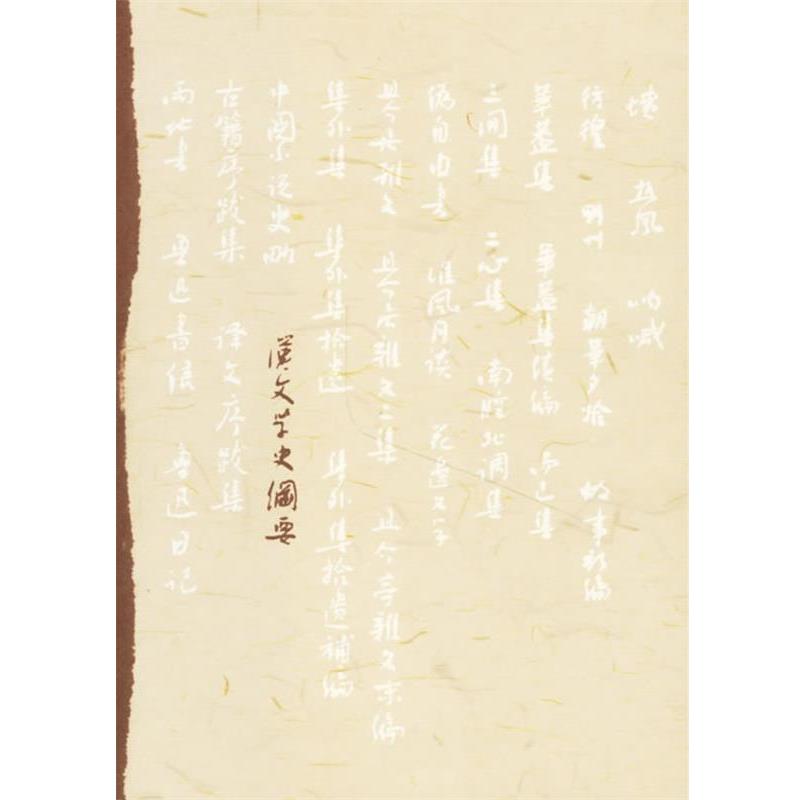 墳 热風 呐喊
彷徨 野艸 朝華夕拾 故事新编
華蓋集 華蓋集续编 而已集
三閒集 二心集 南腔北调集
偽自由書 准風月谈 花邊文学
且介亭雜文 且介亭雜文二集 且介亭雜文末编
集外集 集外集拾遺 集外集拾遺補编
中國小说史略 漢文学史綱要
古籍序跋集 译文序跋集
两地書 魯迅書信 魯迅日记